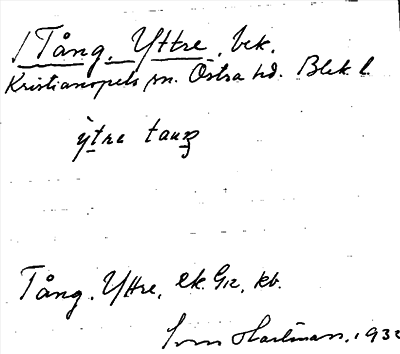 Tång, Yttre, bek.
Kristianopels sn. Östra hd. Blek. l.
ỳtre taŋ
Tång, Yttre, ek. G12, kb.
Sven Hartman, 1932